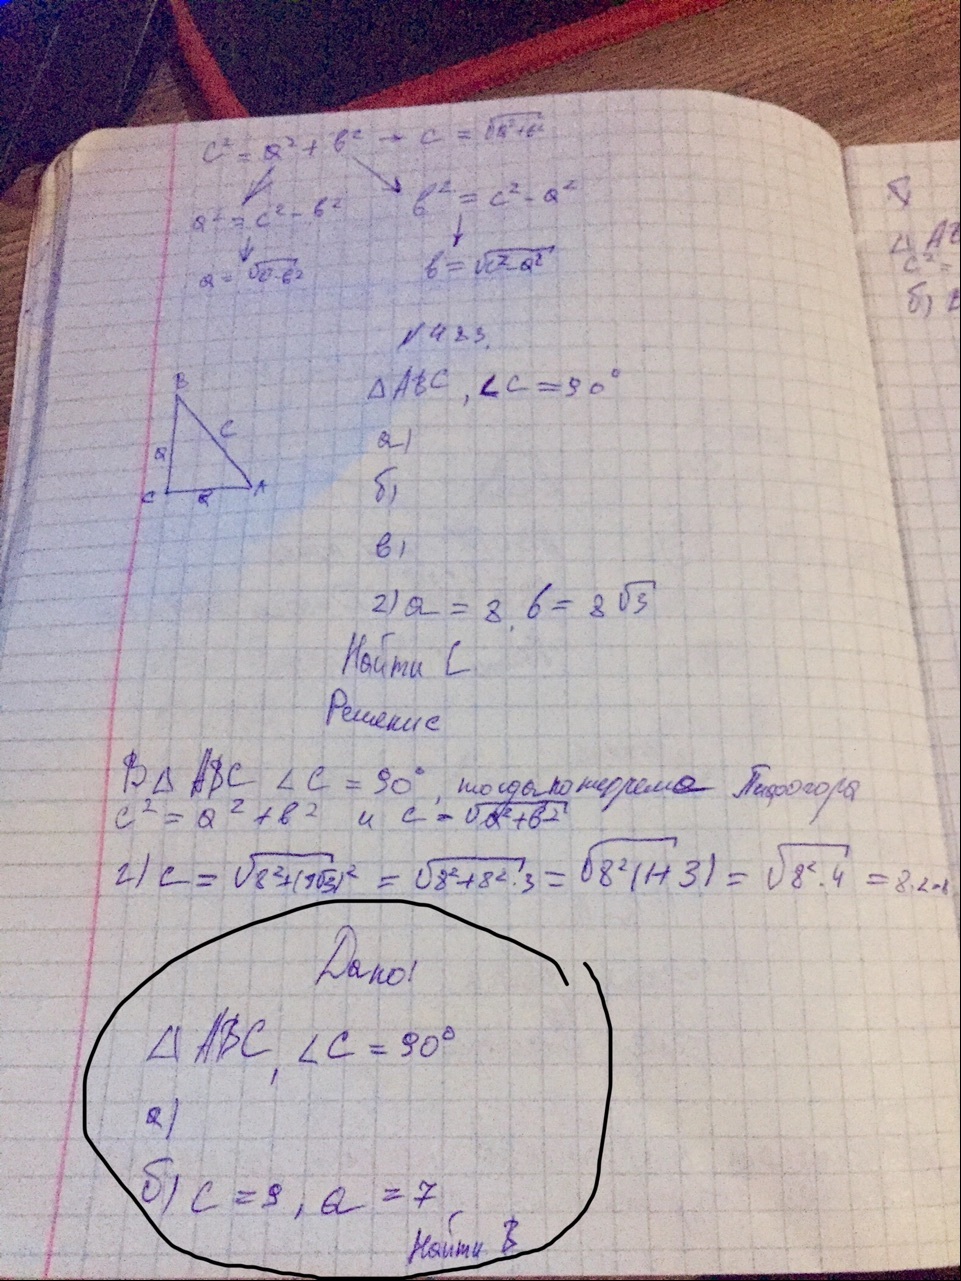 c² = a² + b² → c = √a²+b²
a² = c² - b²
b² = c² - a²
a = √c²-b²
b = √c²-a²
N 483.
△ABC, ∠C = 90°
B
c
a
C
a
A
а)
б)
в)
г) a = 8, b = 8√3
Найти C
Решение
В △ ABC ∠C = 90°, тогда по теореме Пифагора
c² = a² + b² и c = √a²+b²
г) c = √8²+(8√3)² = √8²+8²·3 = √8²(1+3) = √8²·4 = 8·2=
Дано:
△ ABC, ∠C = 90°
а)
б) c = 9, a = 7
Найти B
△ AB
c² =
б)